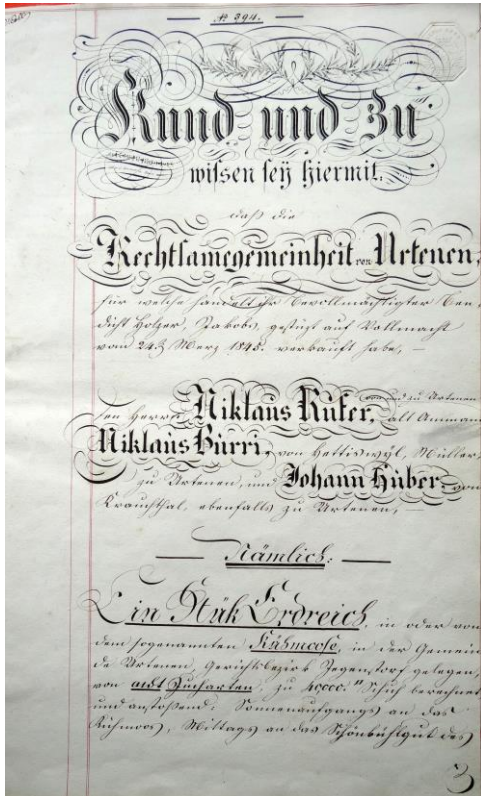 № 394.
Kund und zu
wissen seÿ hiermit,
daß die
Rechtsamegemeinheit von Urtenen,
für welche handelt ihr bevollmächtigter Ben,
dicht Holzer, Jakobs, gestüzt auf Vollmacht
vom 24.ᵗ Merz 1845. verkauft habe, —
den Herren Niklaus Rufer, von und zu Urtenen alt Ammann
Niklaus Bürri, von Hettiswÿl, Müller,
zu Urtenen, und Johann Huber, von
Krauchthal, ebenfalls zu Urtenen, —
— Nämlich: —
Ein Stük Erdreich, in oder von
dem sogenannten Kühmoose, in der Gemein
de Urtenen, Gerichtsbezirk Jegenstorf gelegen,
von acht Jucharten, zu 40,000. Schuh berechnet
und anstoßend: Sonnenaufgangs an das
Kühmoos, Mittags an das Schönbühlgut des